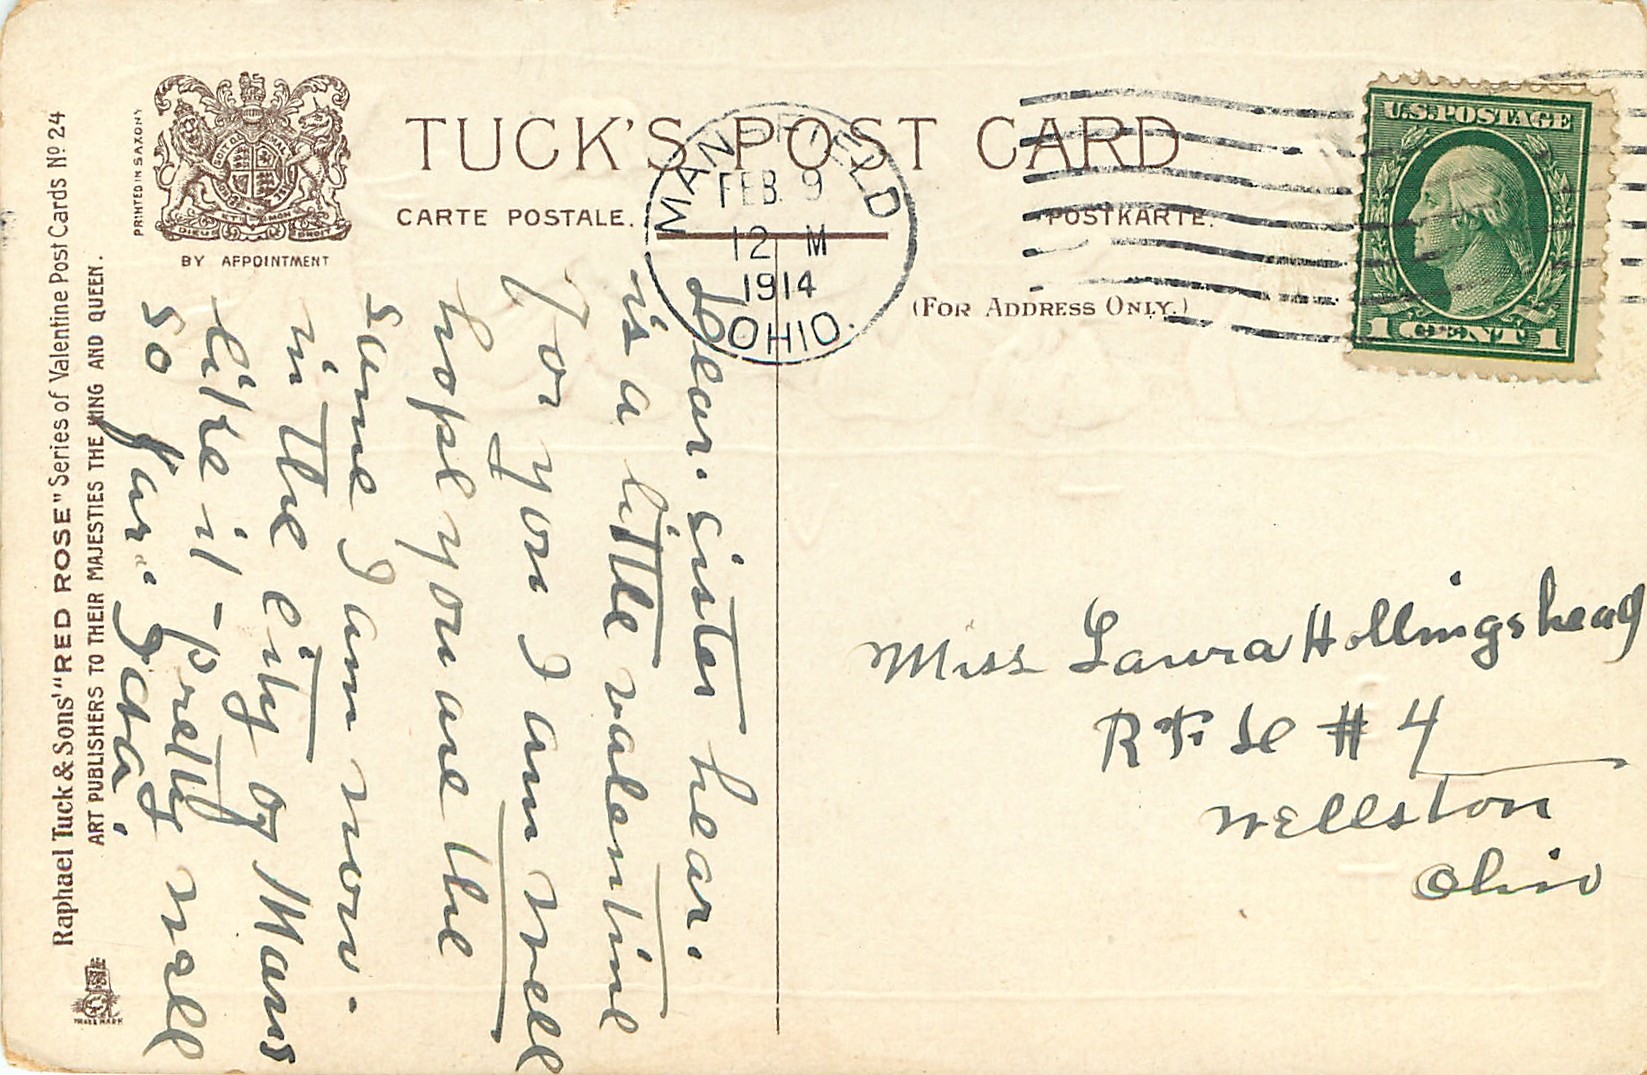 TUCK'S POST CARD
CARTE POSTALE.
POSTKARTE.
(FOR ADDRESS ONLY.)
PRINTED IN SAXONY
BY APPOINTMENT
DIEU ET MON DROIT
Raphael Tuck & Sons' "RED ROSE" Series of Valentine Post Cards No 24
ART PUBLISHERS TO THEIR MAJESTIES THE KING AND QUEEN.
TRADE MARK
MANSFIELD
FEB 9
12 M
1914
OHIO.
U.S. POSTAGE
1 CENT 1
Dear. sister hear.
is a little valentine
for you I am well
hope you are the
same I am now.
in the city of Mans
like it pretty well
so far.
Miss Laura Hollingshead
R F D # 4
Wellston
Ohio